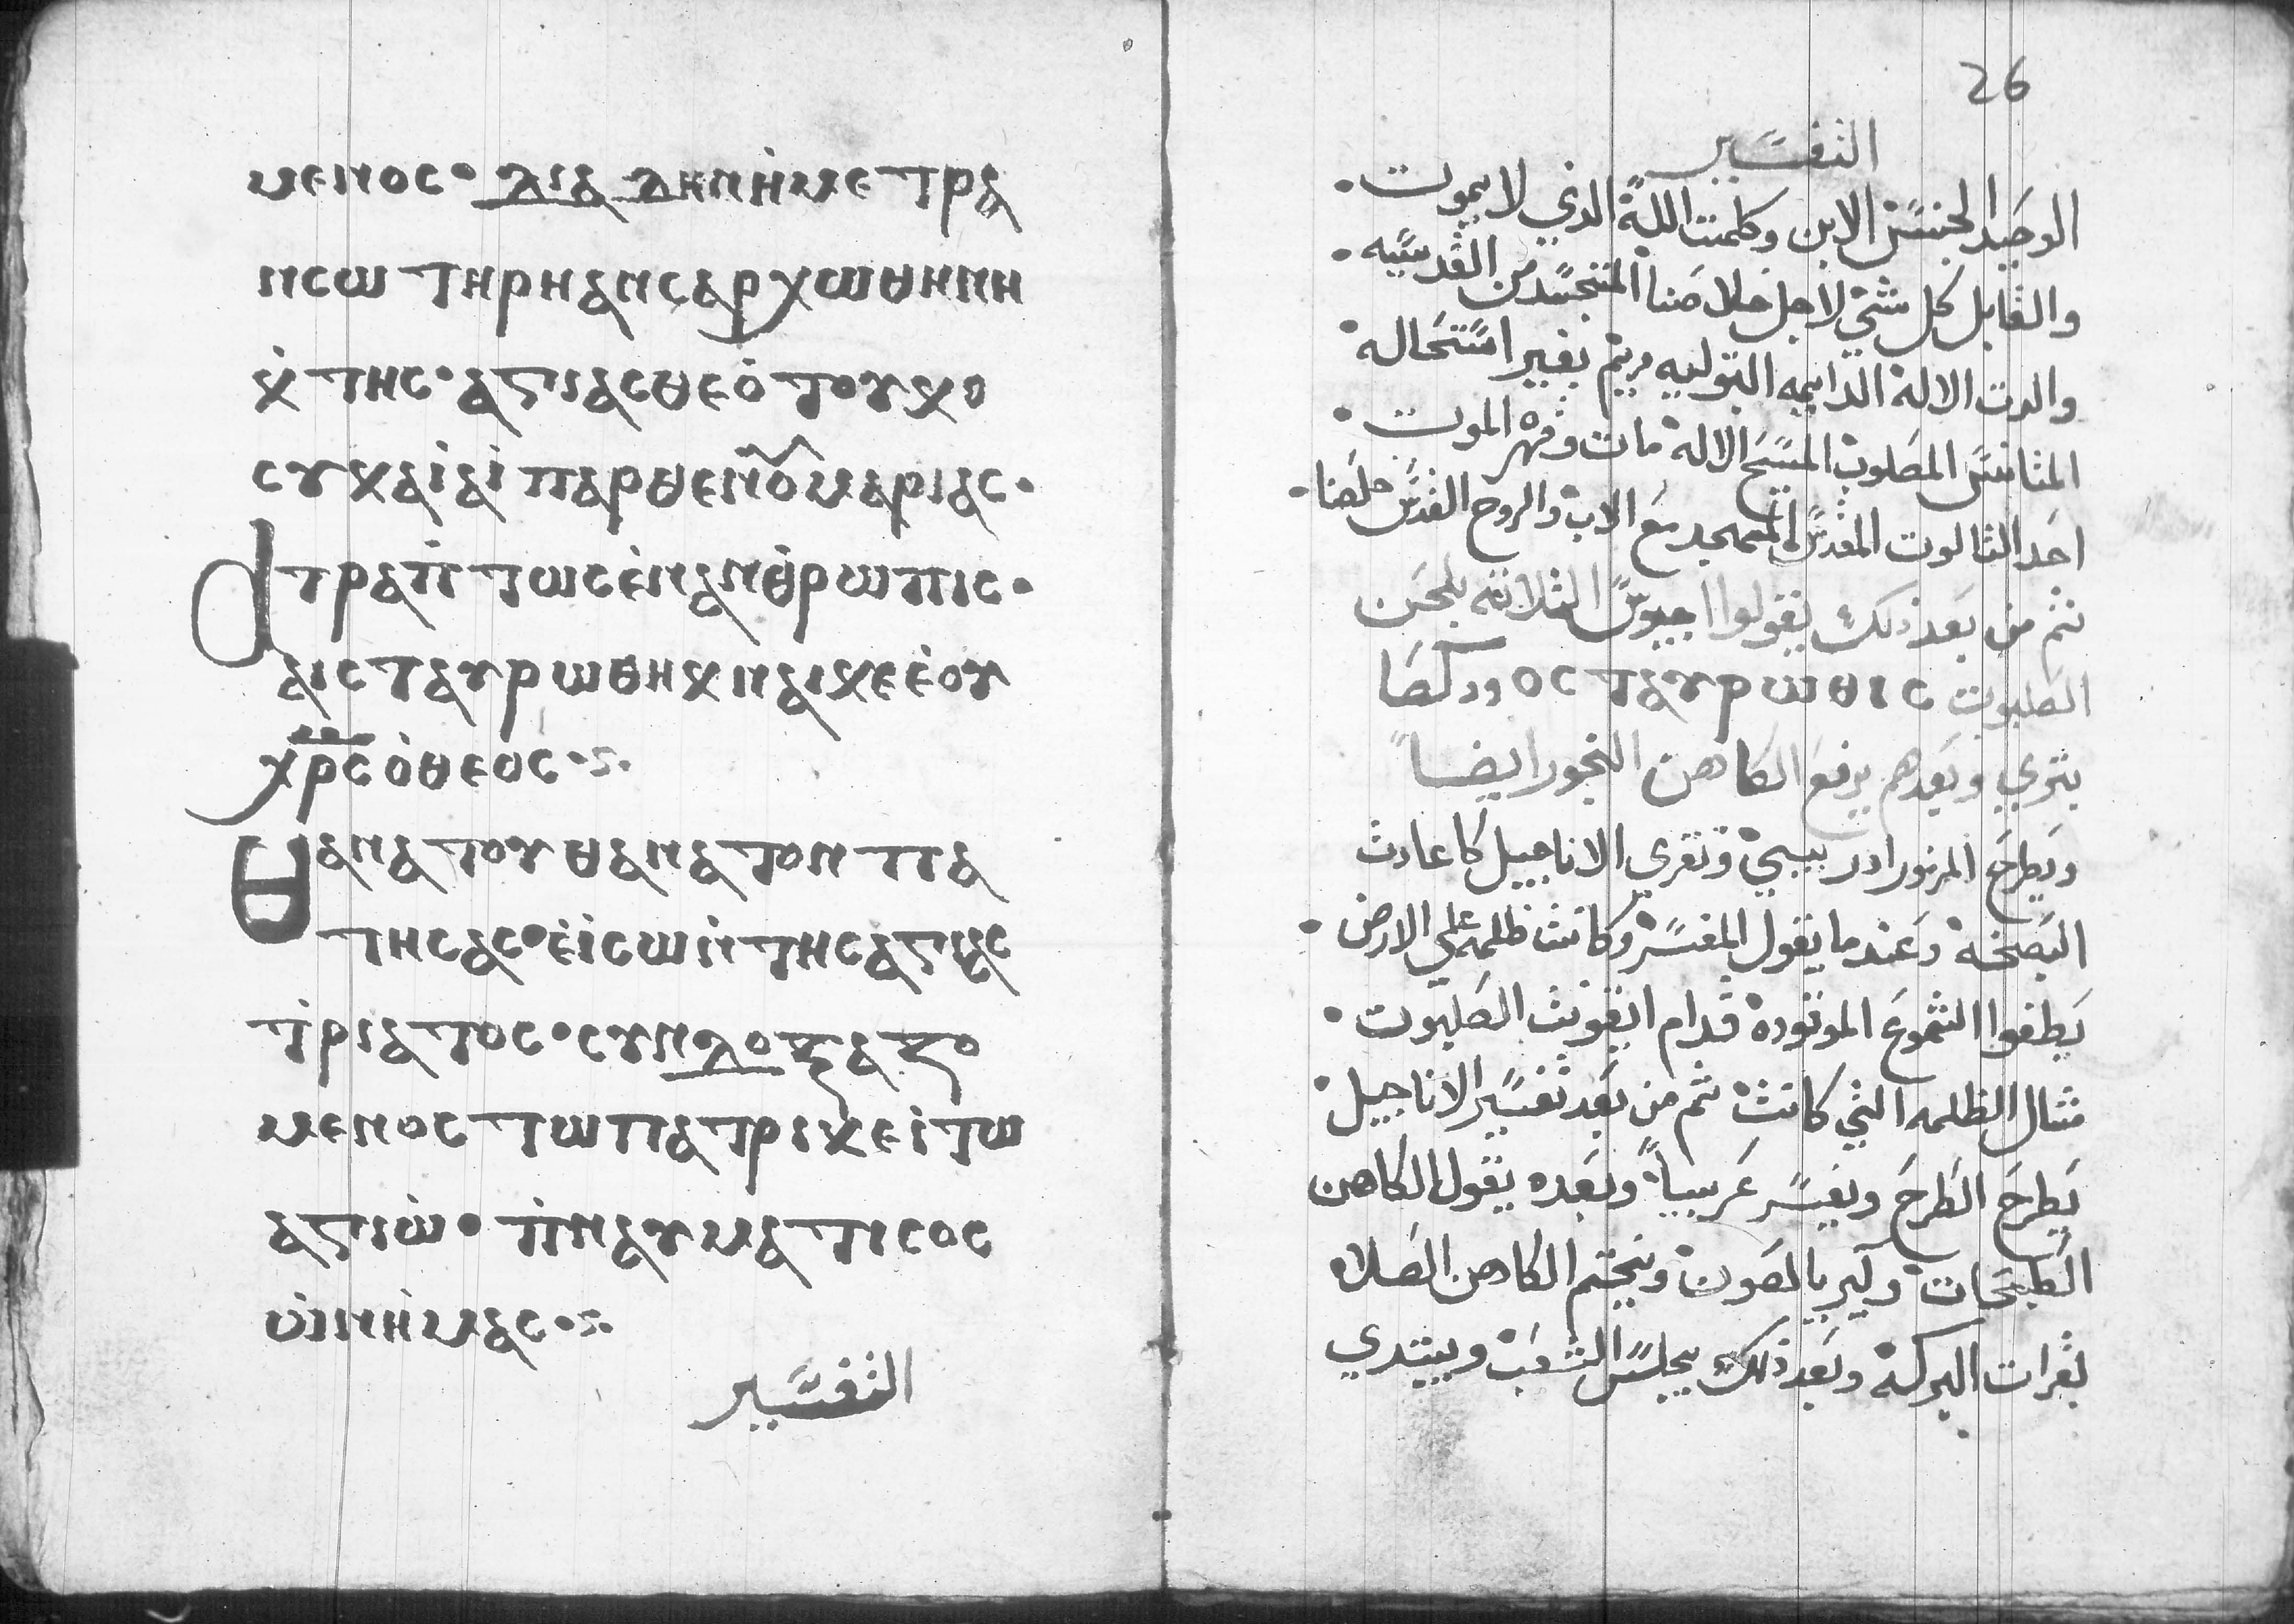 ⲙⲉⲛⲟⲥ· ⲇⲓⲁ ⲇⲏⲛⲏ̇ⲙⲉⲧⲣⲁ
ⲛⲥⲱⲧⲏⲣⲏⲁⲛⲥⲁⲣⲭⲱⲑⲏⲛⲏ
ⲕ̇ⲧⲏⲥ·ⲁⲅⲓⲁⲥⲑⲉⲟ̇ⲧⲟⲩⲕⲟ
ⲥⲩⲕⲁⲓ̇ⲁⲓ̇ⲡⲁⲣⲑⲉⲛⲟⲩⲙⲁⲣⲓⲁⲥ·
ⲁⲧⲣⲁⲡ̇ⲧⲱⲥⲉ̇ⲛⲁⲛⲑ̇ⲣⲱⲡⲓⲥ·
ⲁⲓⲥⲧⲁⲩⲣⲱⲑⲏⲕⲛⲁⲓⲕⲉⲉ̇ⲟⲩ
ⲭⲣ̅ⲥ̅ⲟ̇ⲑⲉⲟⲥ·ⲋ·
ⲑⲁⲛⲁⲧⲟⲩⲑⲁⲛⲁⲧⲟⲛⲡⲁ
ⲧⲏⲥⲁⲥ·ⲉ̇ⲓ̇ⲥⲱⲛ̇ⲧⲏⲥⲁⲅⲓⲁⲥ
ⲧ̇ⲣⲓⲁⲧⲟⲥ·ⲥⲩⲛⲇⲟⲝⲁⲍⲟ
ⲙⲉⲛⲟⲥⲧⲱⲡⲁⲧⲣⲓⲕⲉⲓ̇ⲧⲱ
ⲁⲅⲓⲱ̇·ⲡ̇ⲛⲁⲩⲙⲁⲧⲓⲥⲟⲥ
ⲟⲓ̇ⲛⲏ̇ⲙⲁⲥ·ⲋ·
التفسير
26
التفسير
الوحيد الجنس الابن وكلمت الله الذي لا يموت·
والقابل كل شي لاجل خلاصنا المتجسد من القديسه·
والدت الاله الدايمه البتوليه مريم بغير استحاله
المتانس المصلوب المسيح الاله مات وقهر الموت·
احد الثالوت المقدس الممجد مع الاب والروح القدس خلصنا·
ثم من بعد ذلك يقولوا اجيوس الثلاثه بلحن
الصلبوت ⲟⲥⲧⲁⲩⲣⲱⲑⲓⲥ ودكصا
بتري وبعدهم يرفع الكاهن البخور ايضاً
ويطرح المزمور ادريبي وتقري الاناجيل كا عادت
البصخه وعند ما يقول المفسر وكانت ظلمه علي الارض·
يطفوا الشموع الموقوده قدام ايقونت الصلبوت·
مثال الظلمه التي كانت ثم من بعد تفسير الاناجيل·
يطرح الطرح ويفسر عربياً وبعده يقول الكاهن
الطبحات وكير بالصوت ويختم الكاهن الصلاه
بقرات البركه وبعد ذلك يجلس الشعب ويبتدي